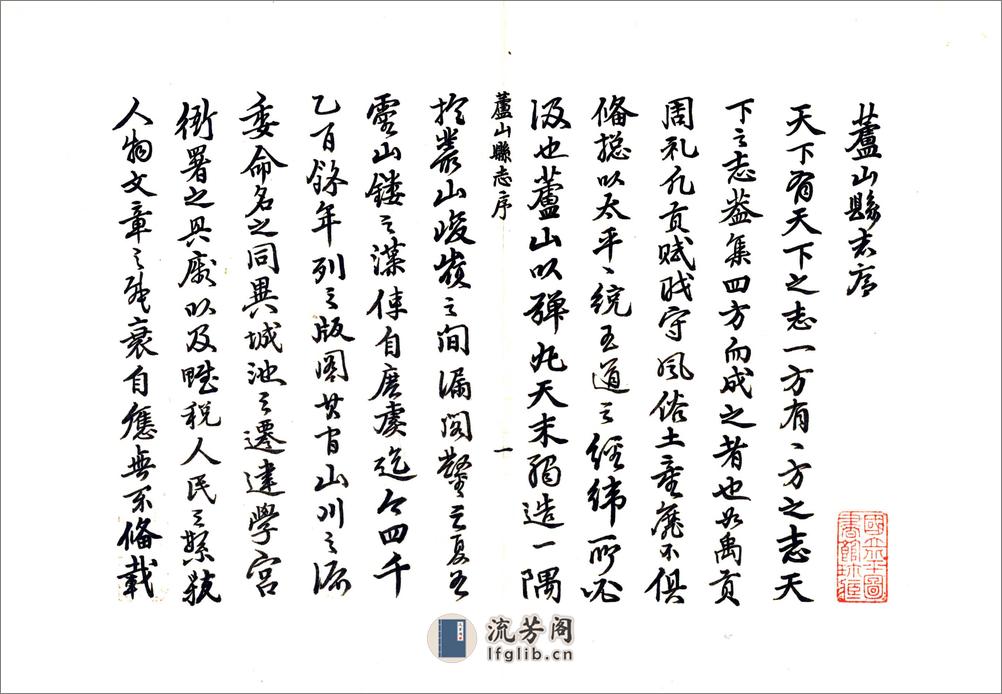 蘆山縣志序
天下有天下之志一方有〻方之志天
下之志蓋集四方而成之者也如禹貢
周礼凡貢賦職守風俗土産靡不俱
俻摠以太平〻統王道之經緯所必
及也蘆山以弹丸天末獨造一隅
蘆山縣志序 一
於叢山峻嶺之间漏閣鑿之夏王
靈山鏤之漢使自唐虞迄今四千
乙百餘年列之版圖其间山川之流
委命名之同異城池之遷建學宮
衙署之興廢以及賦税人民之繁耗
人物文章之盛衰自應無不備載
國立北平圖
書館珍藏
流芳阁
lfglib.cn